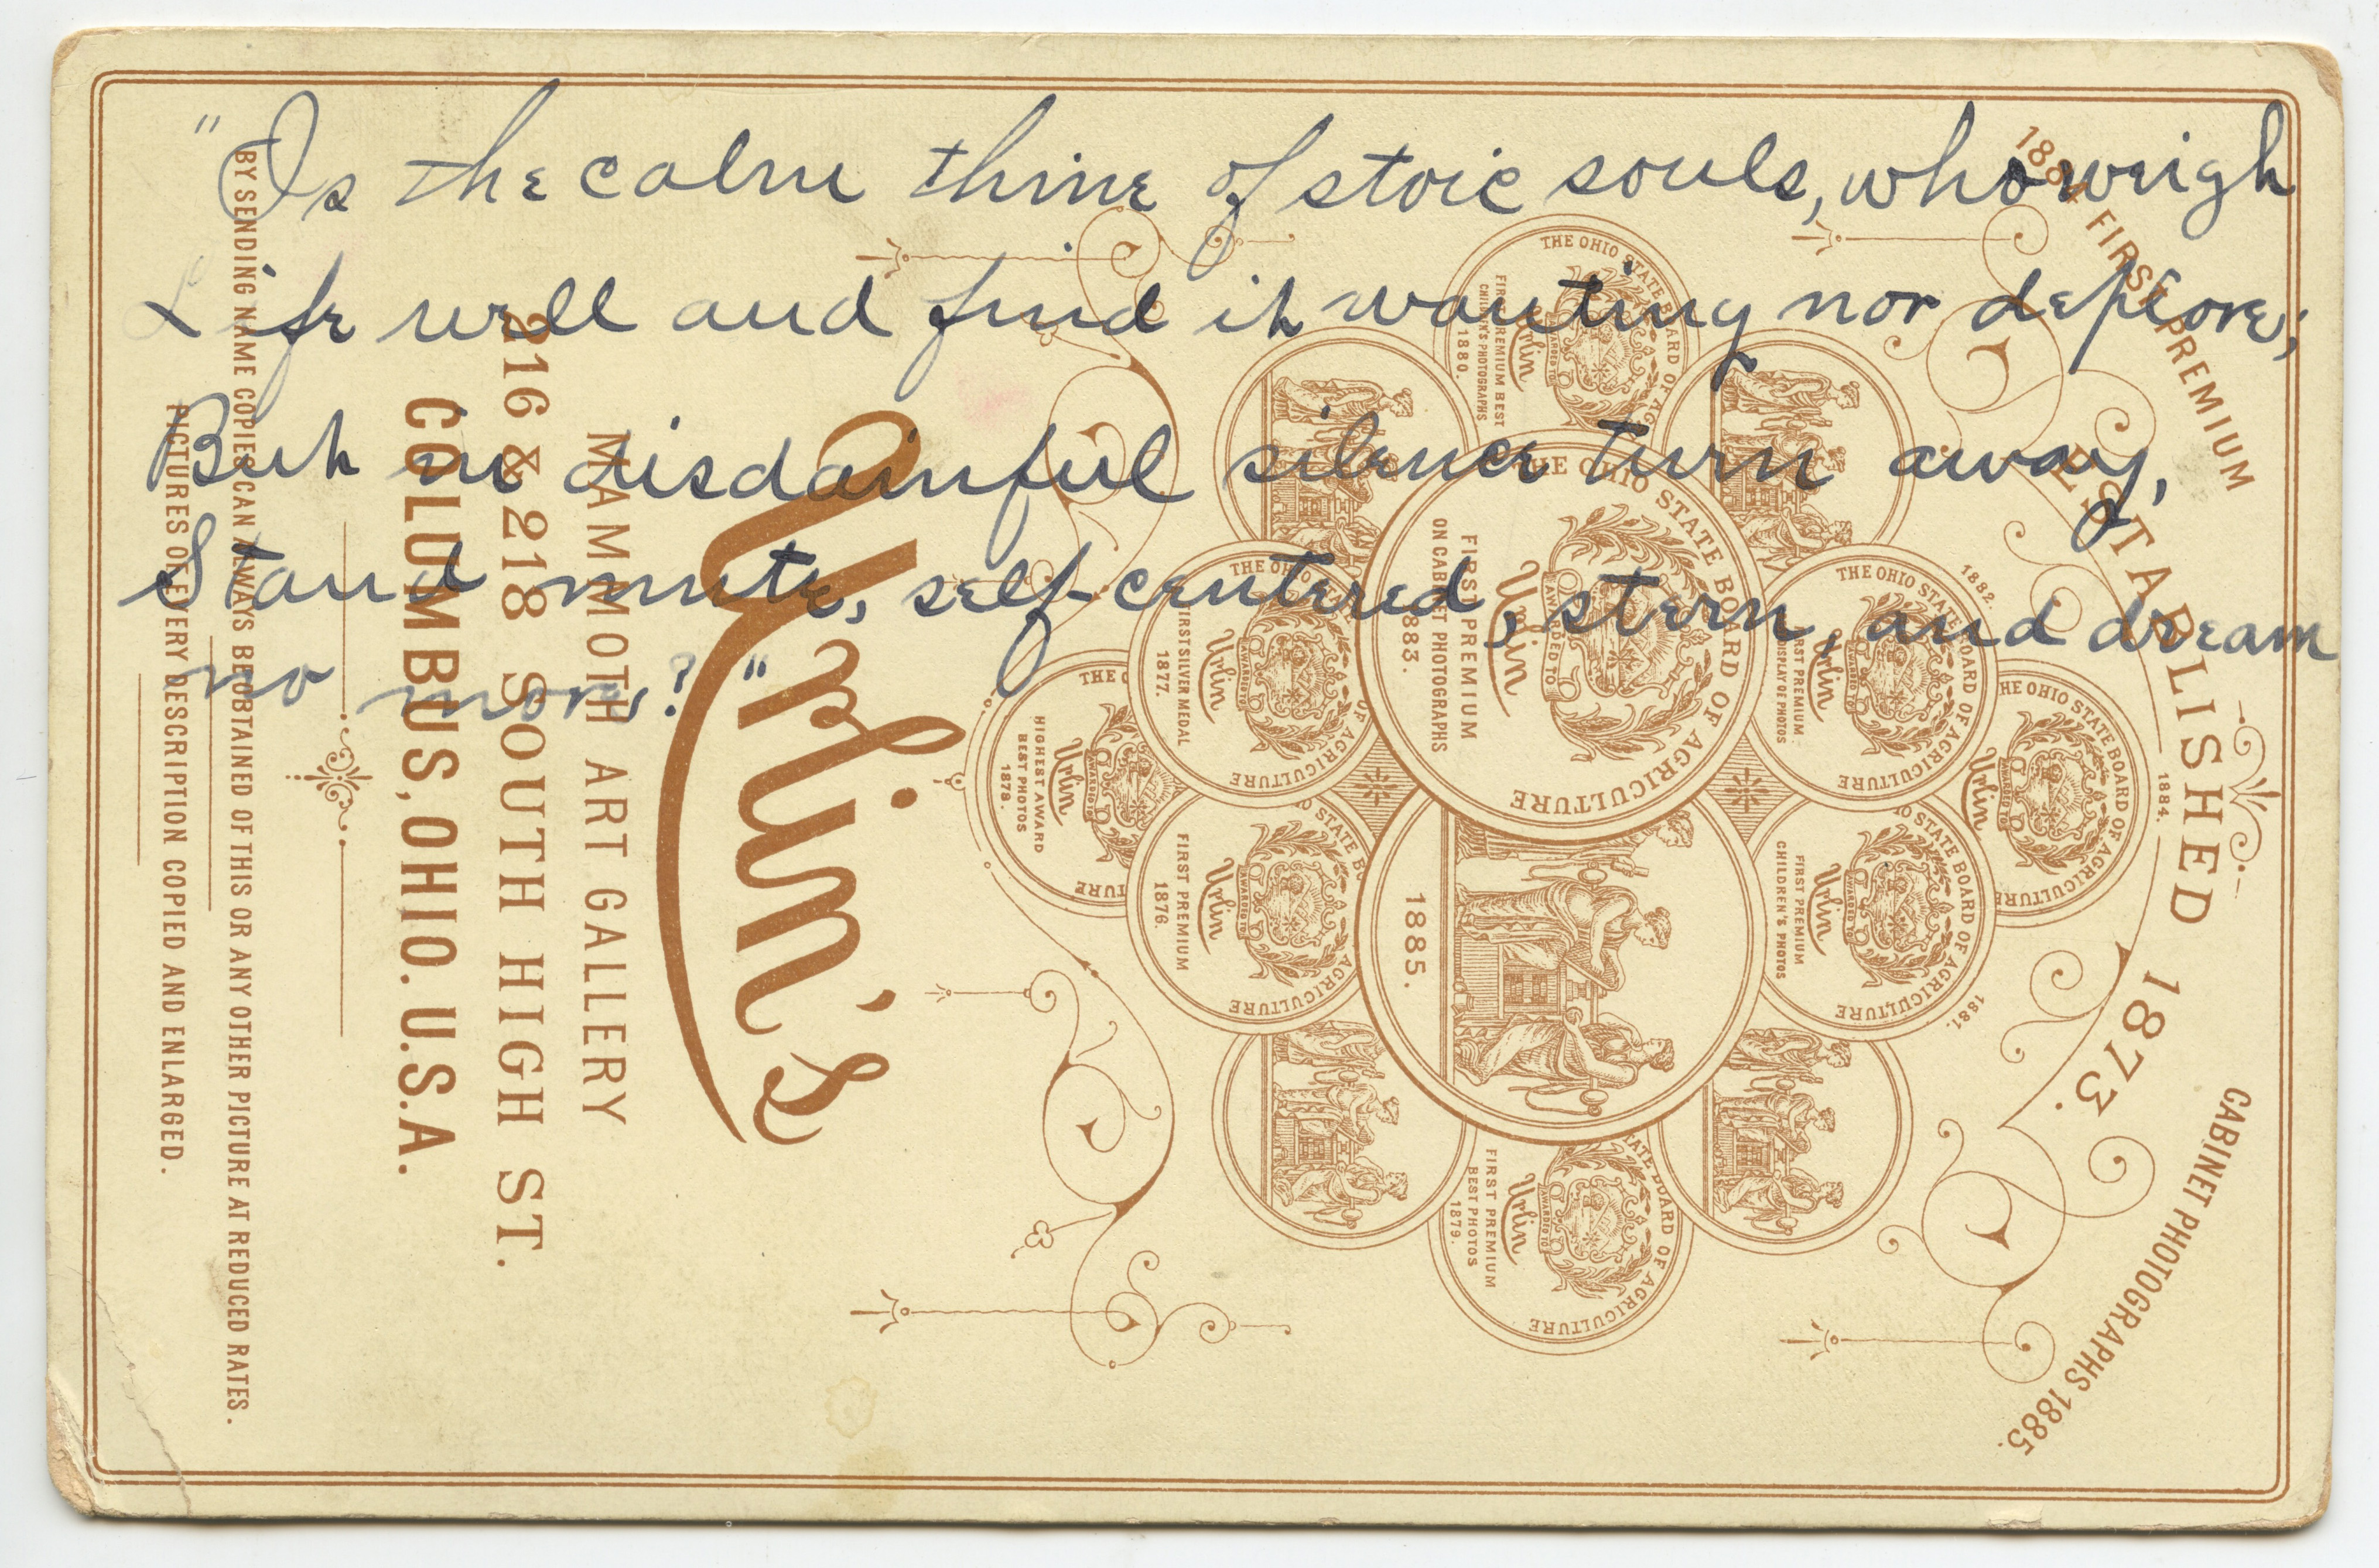 "Is the calm thine of stoic souls, who weigh
Life well and find it wanting nor deplore;
But in disdainful silence turn away,
Stand mute, self-centered, stern, and dream
no more?"
1884 FIRST PREMIUM
CABINET PHOTOGRAPHS 1885.
ESTABLISHED 1873.
1884.
THE OHIO STATE BOARD OF AGRICULTURE
AWARDED TO
Urlin
1882.
THE OHIO STATE BOARD OF AGRICULTURE
AWARDED TO
Urlin
FIRST PREMIUM
DISPLAY OF PHOTOS
1881.
STATE BOARD OF AGRICULTURE
AWARDED TO
Urlin
FIRST PREMIUM
CHILDREN'S PHOTOS
THE OHIO STATE BOARD OF AG
AWARDED TO
Urlin
FIRST PREMIUM BEST
CHILDREN'S PHOTOGRAPHS
1880.
THE OHIO STATE BOARD OF AGRICULTURE
AWARDED TO
Urlin
FIRST PREMIUM
ON CABINET PHOTOGRAPHS
1883.
1885.
STATE BOARD OF AGRICULTURE
AWARDED TO
Urlin
FIRST PREMIUM
BEST PHOTOS
1879.
THE OHIO STATE
OF AGRICULTURE
AWARDED TO
Urlin
FIRST SILVER MEDAL
1877.
STATE BO
AGRICULTURE
AWARDED TO
Urlin
FIRST PREMIUM
1876.
THE O
TURE
AWARDED TO
Urlin
HIGHEST AWARD
BEST PHOTOS
1878.
Urlin's
MAMMOTH ART GALLERY
216 & 218 SOUTH HIGH ST.
COLUMBUS, OHIO. U.S.A.
BY SENDING NAME COPIES CAN ALWAYS BE OBTAINED OF THIS OR ANY OTHER PICTURE AT REDUCED RATES.
PICTURES OF EVERY DESCRIPTION COPIED AND ENLARGED.